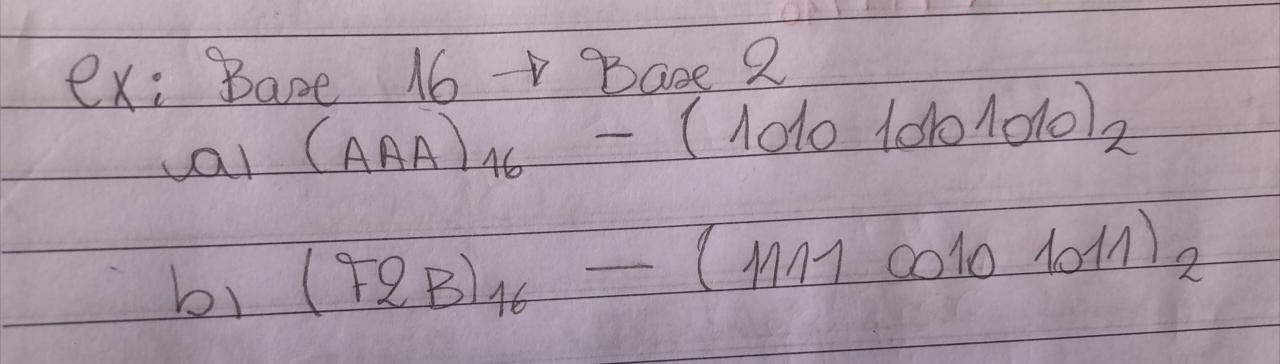 ex: Base 16 → Base 2
a) (AAA)16 - (1010 10101010)2
b) (F2B)16 — (1111 0010 1011)2